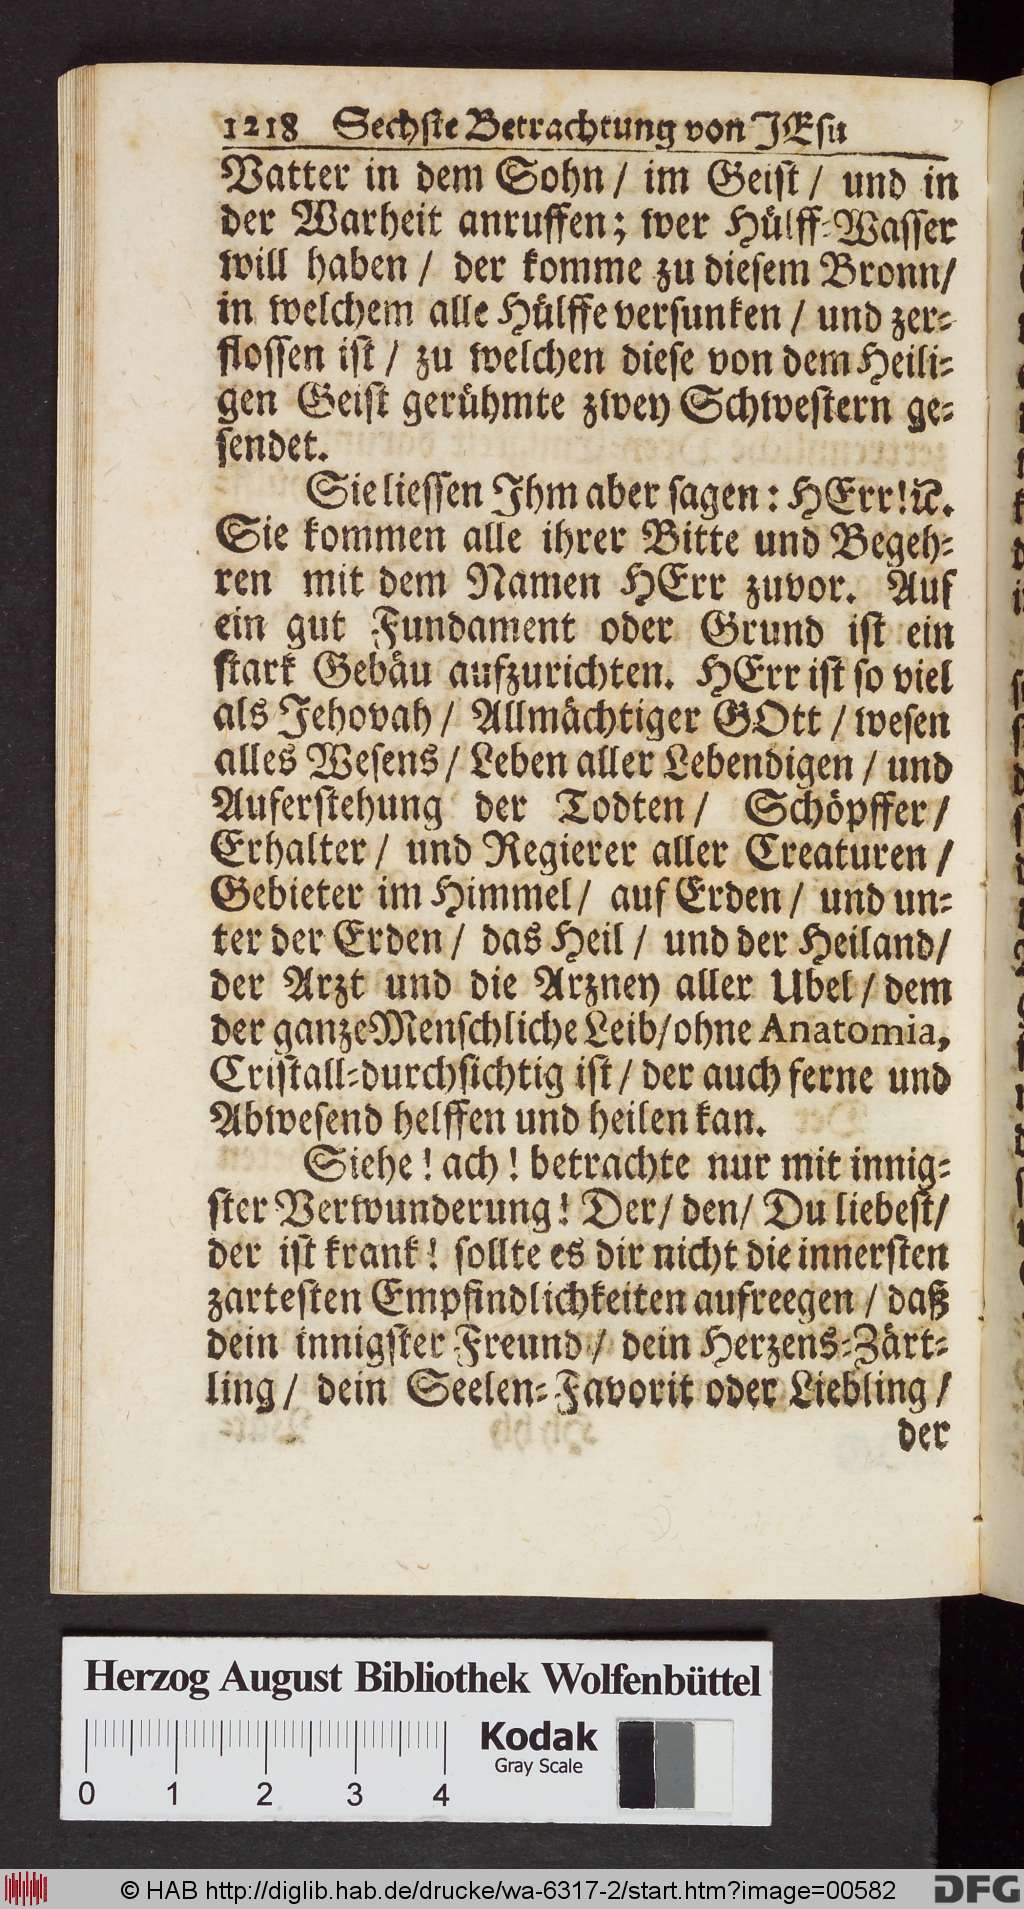 1218 Sechste Betrachtung von JEsu
Vatter in dem Sohn / im Geist / und in
der Warheit anruffen; wer Hülff-Wasser
will haben / der komme zu diesem Bronn/
in welchem alle Hülffe versunken / und zer-
flossen ist / zu welchen diese von dem Heili-
gen Geist gerühmte zwey Schwestern ge-
sendet.
Sie liessen Ihm aber sagen: HErr! ꝛc.
Sie kommen alle ihrer Bitte und Begeh-
ren mit dem Namen HErr zuvor. Auf
ein gut Fundament oder Grund ist ein
stark Gebäu aufzurichten. HErr ist so viel
als Jehovah / Allmächtiger GOtt / wesen
alles Wesens / Leben aller Lebendigen / und
Auferstehung der Todten / Schöpffer /
Erhalter / und Regierer aller Creaturen /
Gebieter im Himmel / auf Erden / und un-
ter der Erden / das Heil / und der Heiland/
der Arzt und die Arzney aller Ubel / dem
der ganze Menschliche Leib/ohne Anatomia,
Cristall-durchsichtig ist / der auch ferne und
Abwesend helffen und heilen kan.
Siehe! ach! betrachte nur mit innig-
ster Verwunderung! Der/ den/ Du liebest/
der ist krank! sollte es dir nicht die innersten
zartesten Empfindlichkeiten aufreegen / daß
dein innigster Freund / dein Herzens-Zärt-
ling / dein Seelen-Favorit oder Liebling /
der
Herzog August Bibliothek Wolfenbüttel
Kodak
Gray Scale
0 1 2 3 4
© HAB http://diglib.hab.de/drucke/wa-6317-2/start.htm?image=00582
DFG